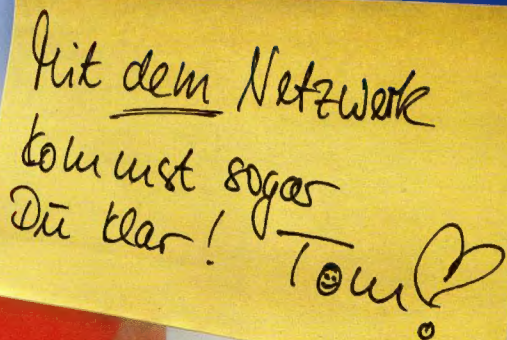 Mit dem Netzwerk
kommst sogar
Du klar! Tom